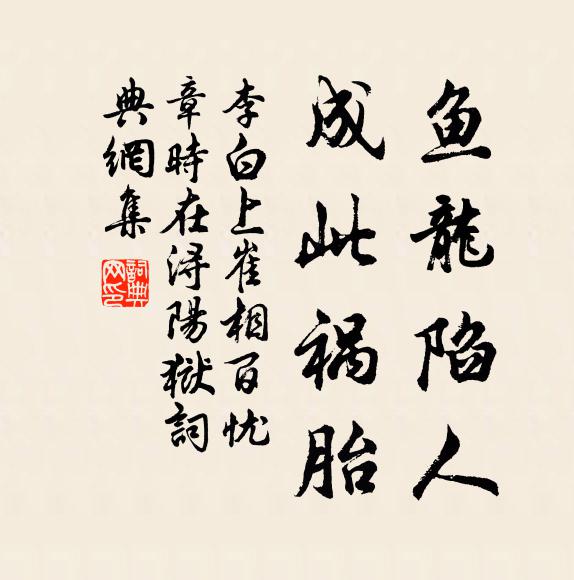 鱼龍陷人
成此祸胎
李白上崔相百忧
章時在浔陽獄詞
典網集
詞典网印